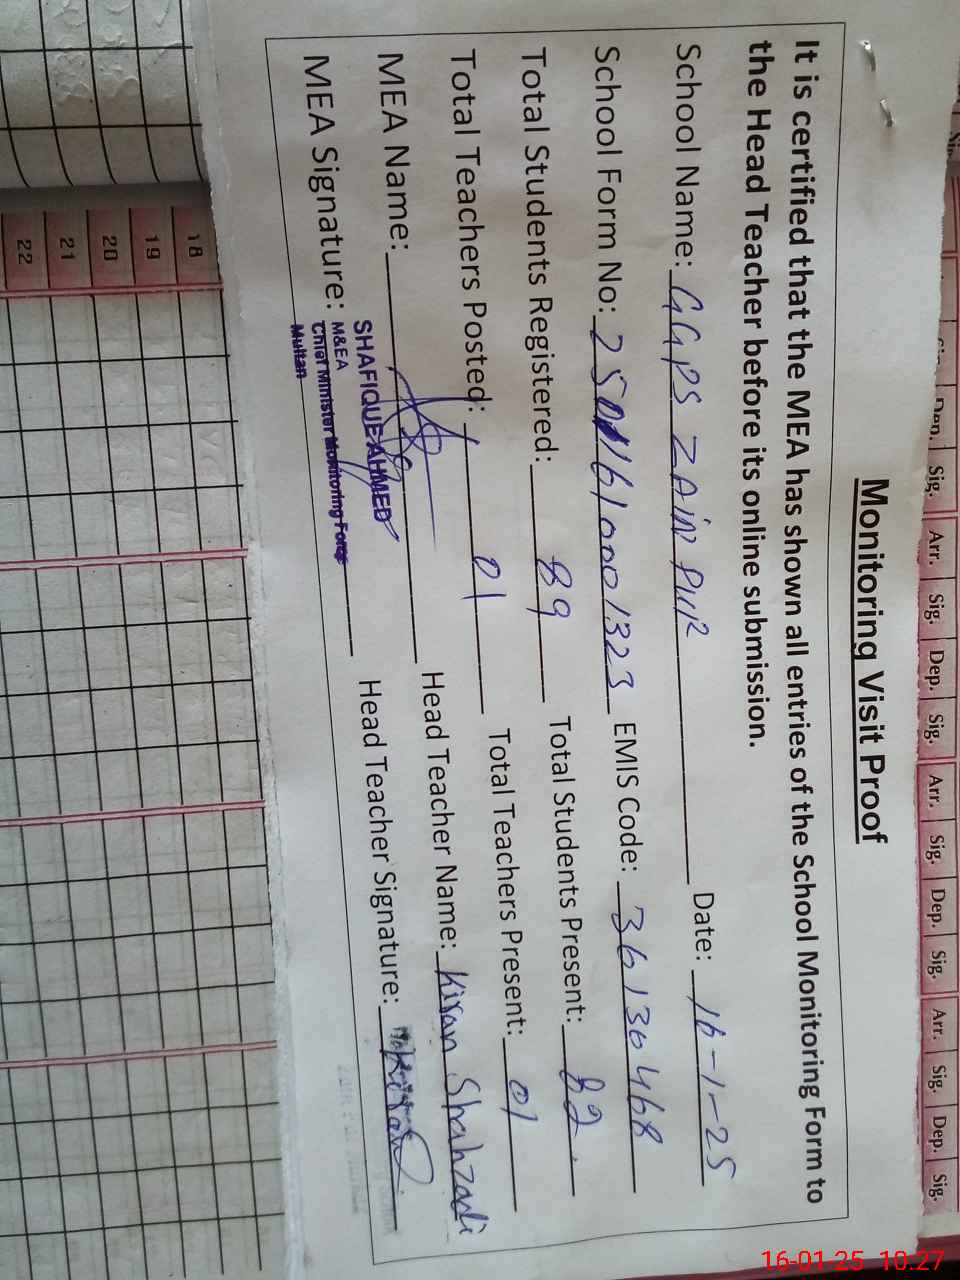 Monitoring Visit Proof
It is certified that the MEA has shown all entries of the School Monitoring Form to
the Head Teacher before its online submission.
School Name: GGPS ZAIN PUR Date: 16-1-25
School Form No: EMIS Code: 36130468
Total Students Registered: 89 Total Students Present: 82
Total Teachers Posted: 01 Total Teachers Present: 01
MEA Name: Head Teacher Name: Kiran Shahzadi
MEA Signature: Head Teacher Signature: Kiran
SHAFIQUE AHMED
M&EA
Chief Minister Monitoring Force
Multan
Dep. Sig. Arr. Sig. Dep. Sig. Arr. Sig. Dep. Sig. Arr. Sig. Dep. Sig.
18
19
20
21
22
16-01-25 10:27